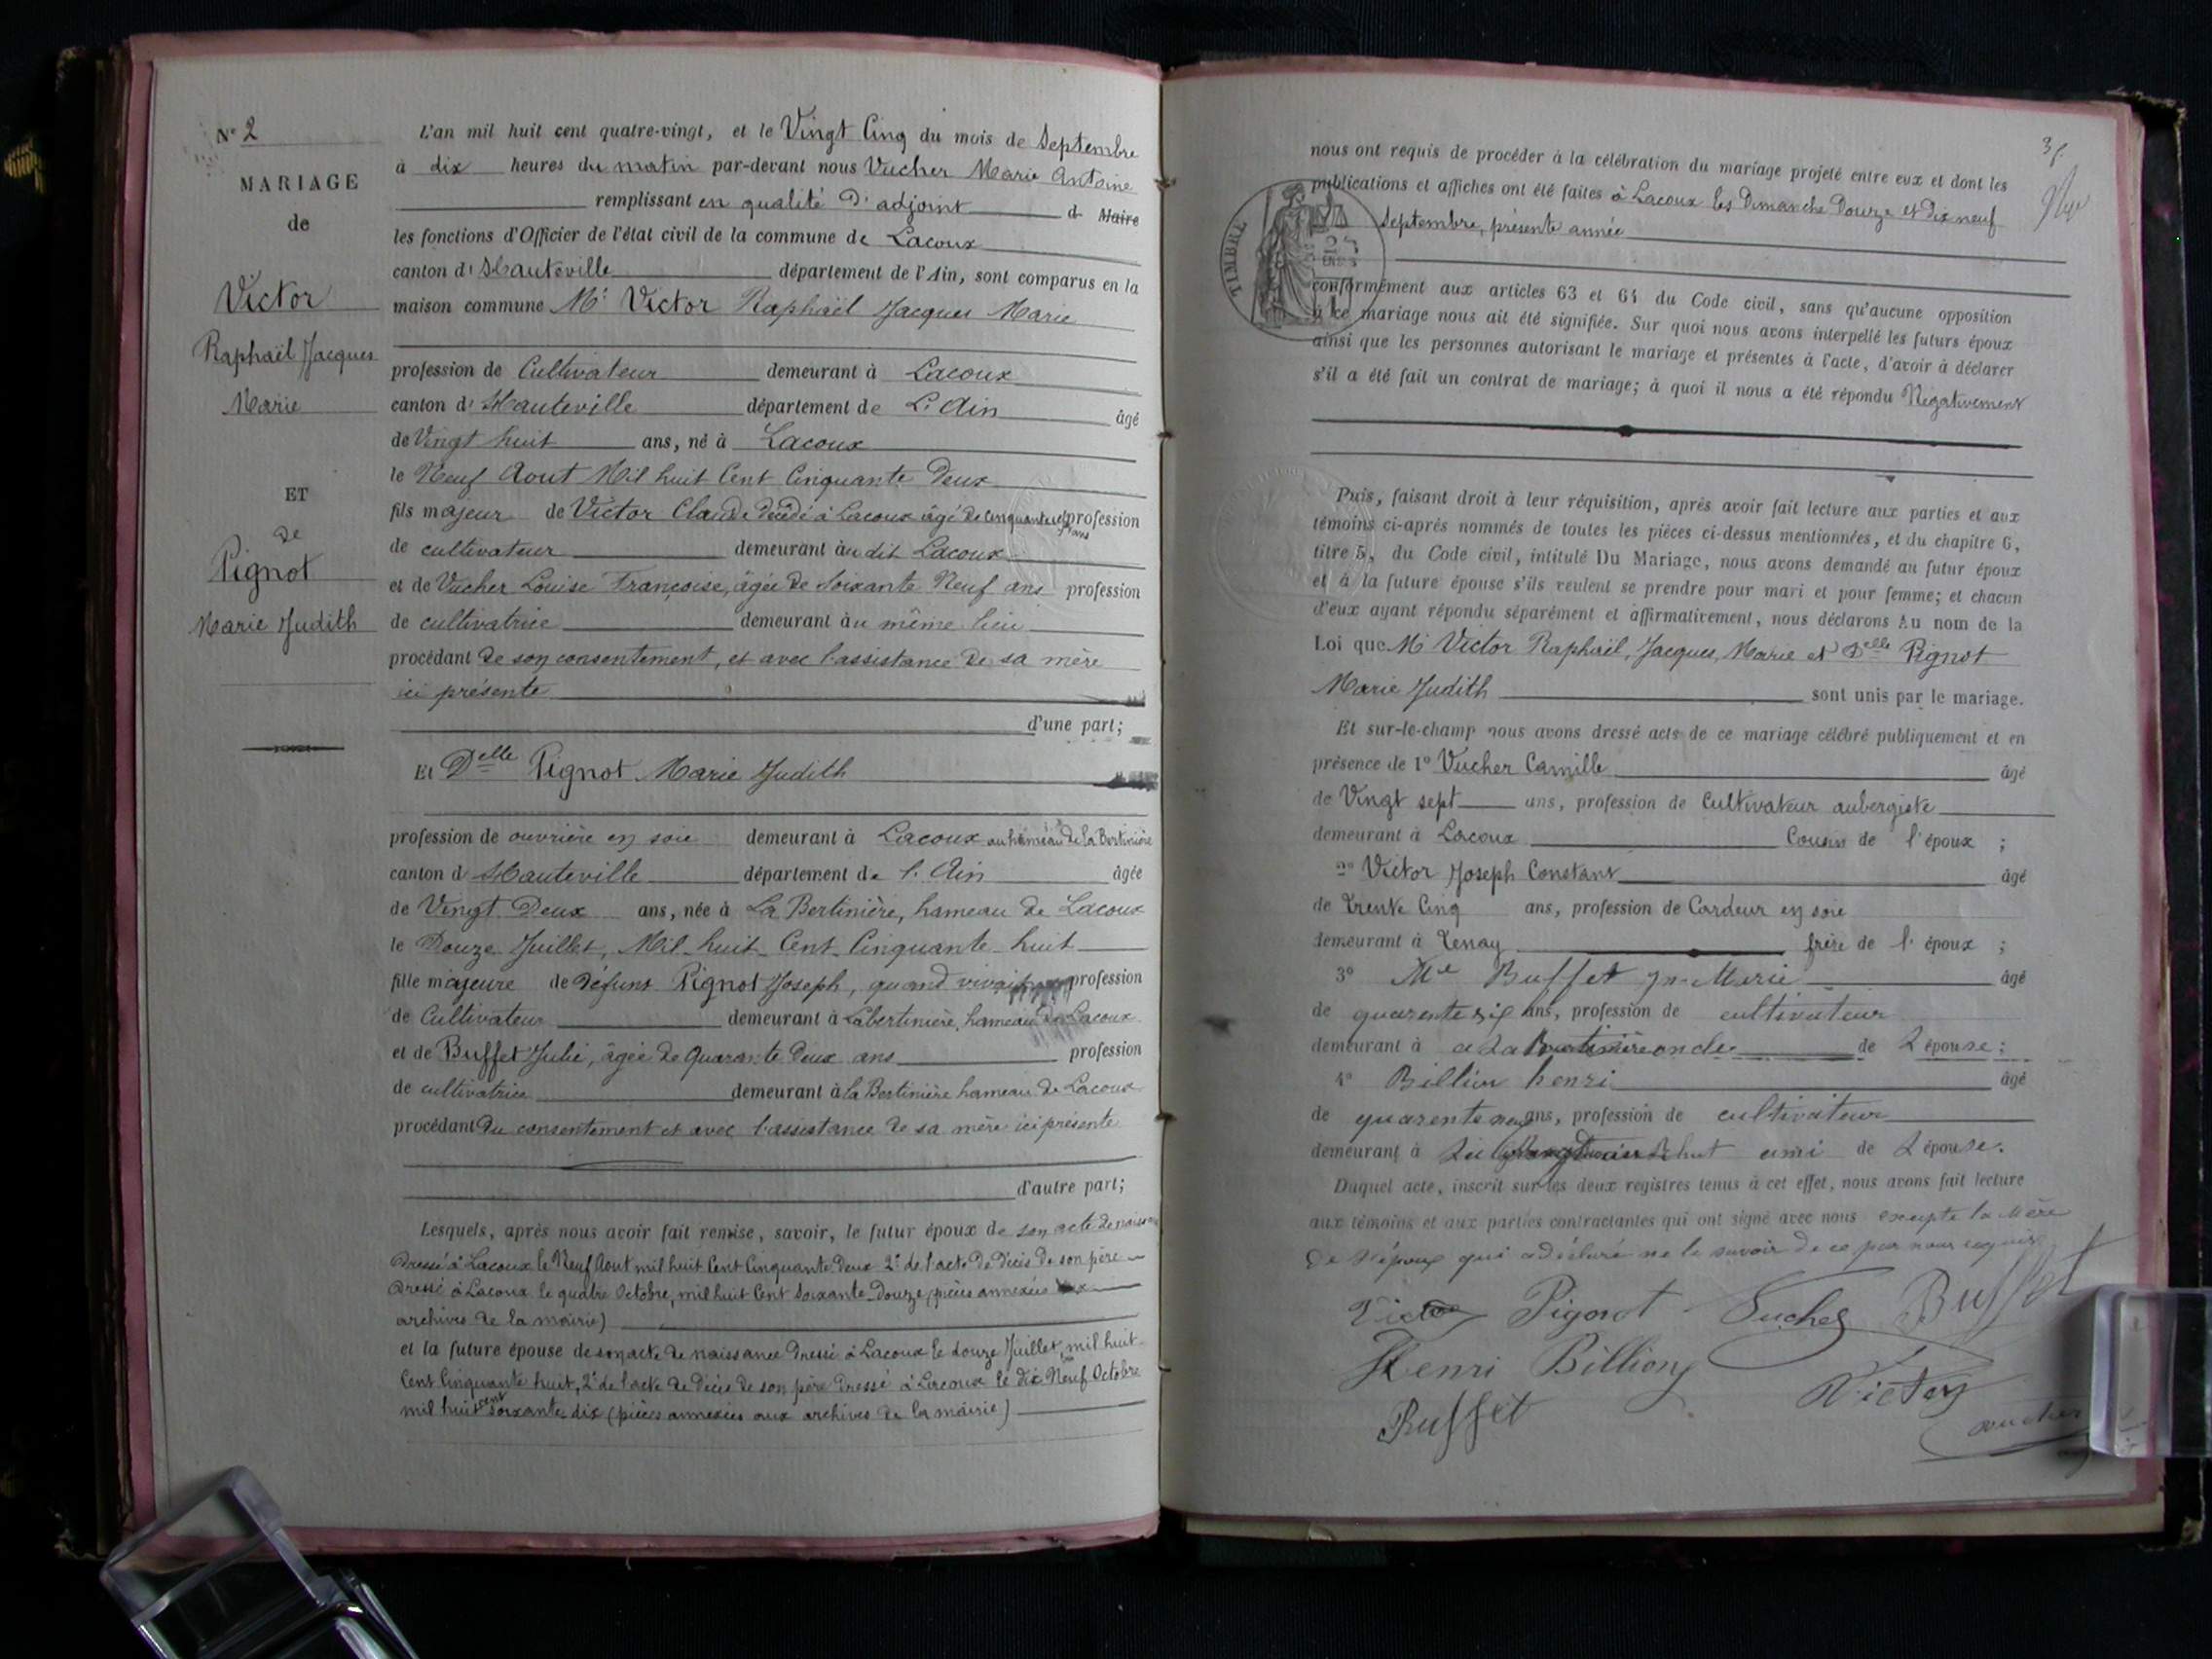 N° 2
MARIAGE
de
Victor
Raphaël Jacques
Marie
ET
de
Pignot
Marie Judith
L'an mil huit cent quatre-vingt, et le Vingt Cinq du mois de Septembre
à dix heures du matin par-devant nous Vucher Marie Antoine
remplissant en qualité d'adjoint d Maire
les fonctions d'Officier de l'état civil de la commune de Lacoux
canton d' Hauteville département de l'Ain, sont comparus en la
maison commune Mr Victor Raphaël Jacques Marie
profession de Cultivateur demeurant à Lacoux
canton d' Hauteville département de L'Ain âgé
de Vingt huit ans, né à Lacoux
le Neuf Aout Mil huit Cent Cinquante Deux
fils majeur de Victor Claude décédé à Lacoux âgé de Cinquante ans profession
de cultivateur demeurant au dit Lacoux
et de Vucher Louise Françoise, âgée de Soixante Neuf ans profession
de cultivatrice demeurant au même lieu
procédant de son consentement, et avec l'assistance de sa mère
ici présente
d'une part;
Et Delle Pignot Marie Judith
profession de ouvrière en soie demeurant à Lacoux au hameau de la Bertinière
canton d Hauteville département de l'Ain âgée
de Vingt Deux ans, née à La Bertinière, hameau de Lacoux
le Douze Juillet, Mil huit Cent Cinquante huit
fille majeure de défunt Pignot Joseph, quand vivait profession
de Cultivateur demeurant à Labertinière, hameau de Lacoux
et de Buffet Julie, âgée de Quarante deux ans profession
de cultivatrice demeurant à la Bertinière hameau de Lacoux
procédant du consentement et avec l'assistance de sa mère ici présente
d'autre part;
Lesquels, après nous avoir fait remise, savoir, le futur époux de son acte de naissance
dressé à Lacoux le Neuf Aout mil huit Cent Cinquante Deux 2° de l'acte de décès de son père
dressé à Lacoux le quatre Octobre, mil huit Cent Soixante Douze (pièces annexées aux
archives de la mairie)
et la future épouse de son acte de naissance dressé à Lacoux le douze Juillet, mil huit
Cent Cinquante huit, 2° de l'acte de décès de son père dressé à Lacoux le dix Neuf Octobre
mil huit cent soixante dix (pièces annexées aux archives de la mairie)
nous ont requis de procéder à la célébration du mariage projeté entre eux et dont les
publications et affiches ont été faites à Lacoux les Dimanche Douze et dix neuf
Septembre, présente année
TIMBRE
conformément aux articles 63 et 64 du Code civil, sans qu'aucune opposition
à ce mariage nous ait été signifiée. Sur quoi nous avons interpellé les futurs époux
ainsi que les personnes autorisant le mariage et présentes à l'acte, d'avoir à déclarer
s'il a été fait un contrat de mariage; à quoi il nous a été répondu Négativement
Puis, faisant droit à leur réquisition, après avoir fait lecture aux parties et aux
témoins ci-après nommés de toutes les pièces ci-dessus mentionnées, et du chapitre 6,
titre 5, du Code civil, intitulé Du Mariage, nous avons demandé au futur époux
et à la future épouse s'ils veulent se prendre pour mari et pour femme; et chacun
d'eux ayant répondu séparément et affirmativement, nous déclarons Au nom de la
Loi que Mr Victor Raphaël, Jacques, Marie et Delle Pignot
Marie Judith sont unis par le mariage.
Et sur-le-champ nous avons dressé acte de ce mariage célébré publiquement et en
présence de 1° Vucher Camille âgé
de Vingt sept ans, profession de Cultivateur aubergiste
demeurant à Lacoux Cousin de l'époux ;
2° Victor Joseph Constant âgé
de Trente Cinq ans, profession de Cardeur en soie
demeurant à Tenay frère de l'époux ;
3° Buffet âgé
de quarente six ans, profession de cultivateur
demeurant à oncle de L'épouse ;
4° Billion henri âgé
de quarente neuf ans, profession de cultivateur
demeurant à ami de L'épouse.
Duquel acte, inscrit sur les deux registres tenus à cet effet, nous avons fait lecture
aux témoins et aux parties contractantes qui ont signé avec nous excepte la Mère
de l'époux qui a déclaré ne le savoir de ce par nous requis
Victor Pignot Vucher Buffet
Henri Billion
Victor
Buffet
vucher